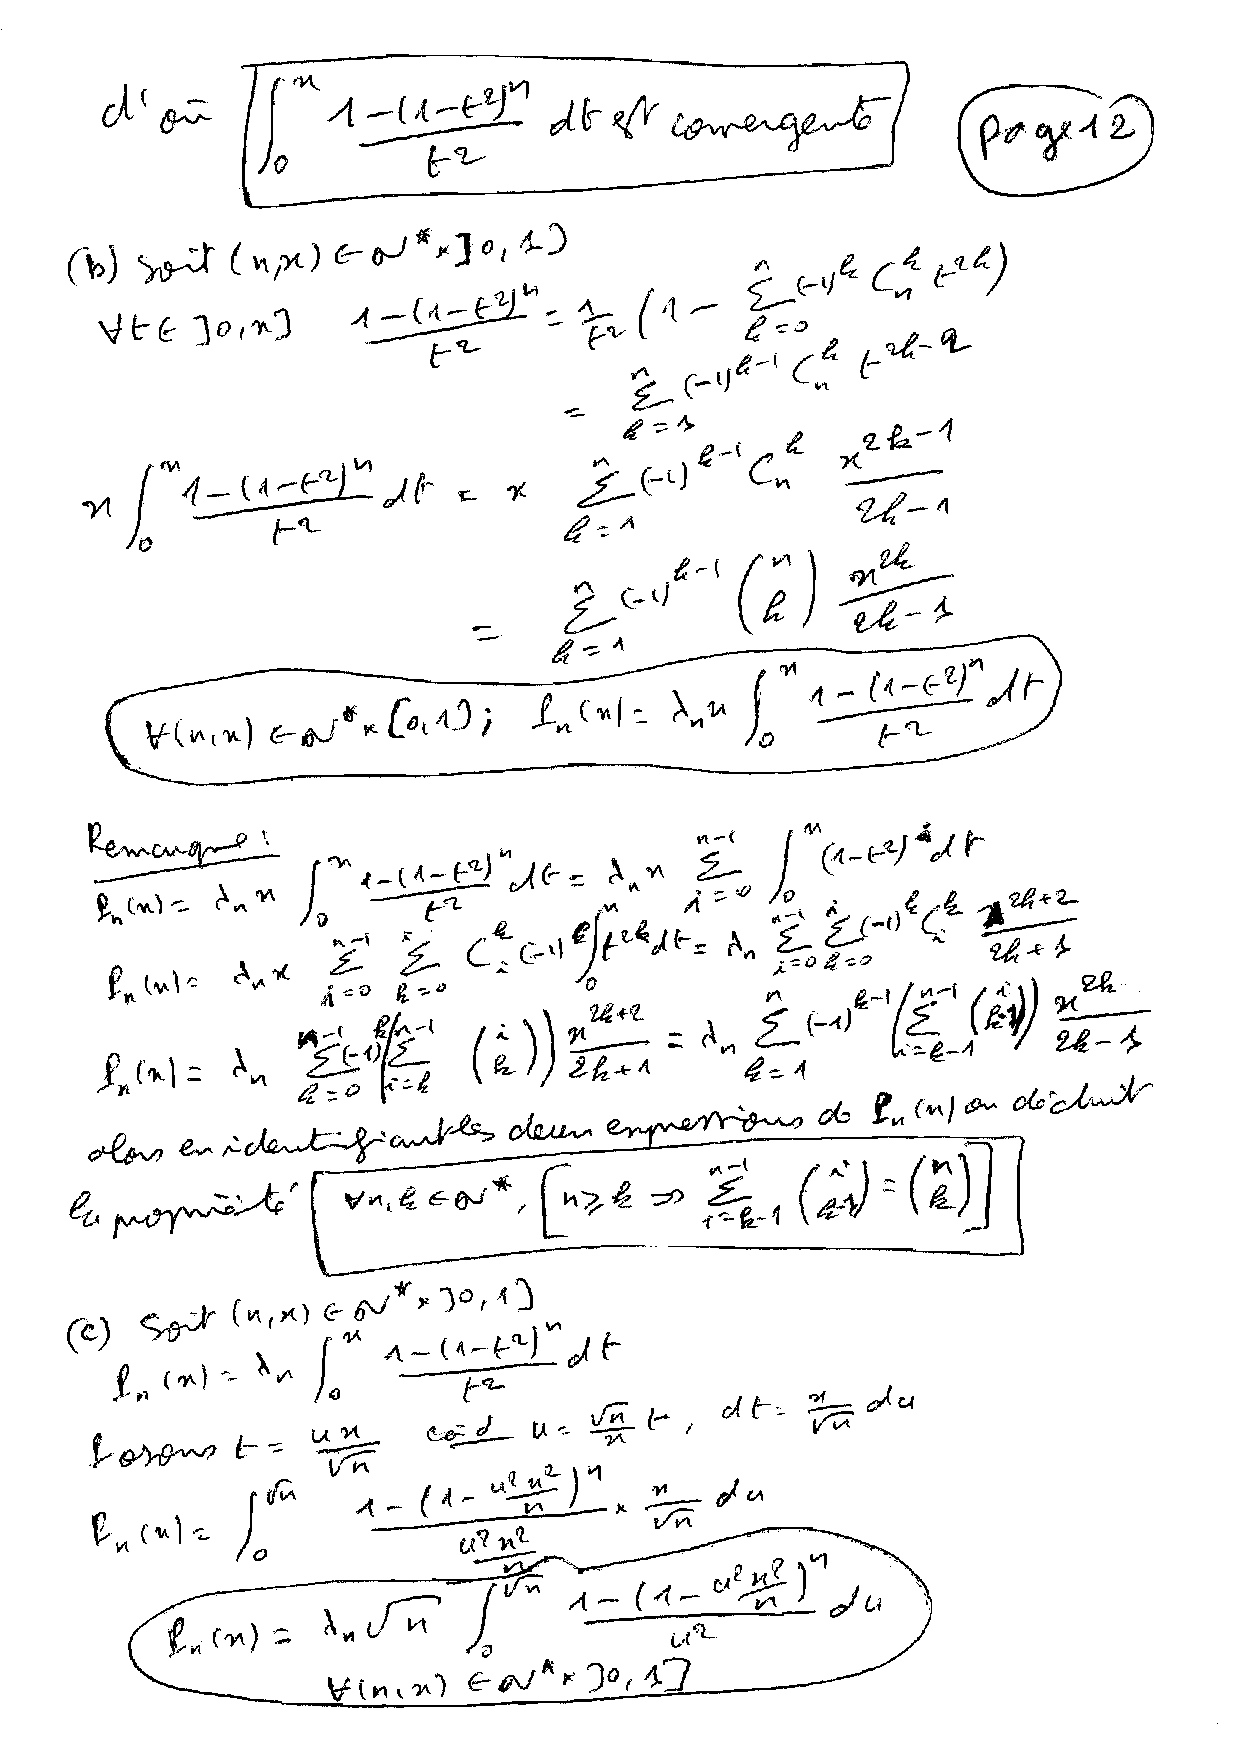 d'où ∫_0^x (1-(1-t²)^n)/t² dt est convergente
page 12
(b) Soit (n,x) ∈ ℕ* × ]0,1]
∀t ∈ ]0,x] (1-(1-t²)^n)/t² = 1/t² (1 - Σ_{k=0}^n (-1)^k C_n^k t^{2k})
= Σ_{k=1}^n (-1)^{k-1} C_n^k t^{2k-2}
x ∫_0^x (1-(1-t²)^n)/t² dt = x Σ_{k=1}^n (-1)^{k-1} C_n^k x^{2k-1}/(2k-1)
= Σ_{k=1}^n (-1)^{k-1} (n k) x^{2k}/(2k-1)
∀(n,x) ∈ ℕ* × [0,1]; P_n(x) = λ_n x ∫_0^x (1-(1-t²)^n)/t² dt
Remarque :
P_n(x) = λ_n x ∫_0^x (1-(1-t²)^n)/t² dt = λ_n x Σ_{i=0}^{n-1} ∫_0^x (1-t²)^i dt
P_n(x) = λ_n x Σ_{i=0}^{n-1} Σ_{k=0}^i C_i^k (-1)^k ∫_0^x t^{2k} dt = λ_n Σ_{i=0}^{n-1} Σ_{k=0}^i (-1)^k C_i^k x^{2k+2}/(2k+1)
P_n(x) = λ_n Σ_{k=0}^{n-1} (-1)^k (Σ_{i=k}^{n-1} (i k)) x^{2k+2}/(2k+1) = λ_n Σ_{k=1}^n (-1)^{k-1} (Σ_{i=k-1}^{n-1} (i k-1)) x^{2k}/(2k-1)
alors en identifiant les deux expressions de P_n(x) on déduit
la propriété ∀n,k ∈ ℕ*, [n ≥ k ⇒ Σ_{i=k-1}^{n-1} (i k-1) = (n k)]
(c) Soit (n,x) ∈ ℕ* × ]0,1]
P_n(x) = λ_n ∫_0^x (1-(1-t²)^n)/t² dt
Posons t = ux/√n càd u = √n/x t, dt = x/√n du
P_n(x) = ∫_0^{√n} (1-(1-u²x²/n)^n)/(u²x²/n) × x/√n du
P_n(x) = λ_n √n ∫_0^{√n} (1-(1-u²x²/n)^n)/u² du
∀(n,x) ∈ ℕ* × ]0,1]